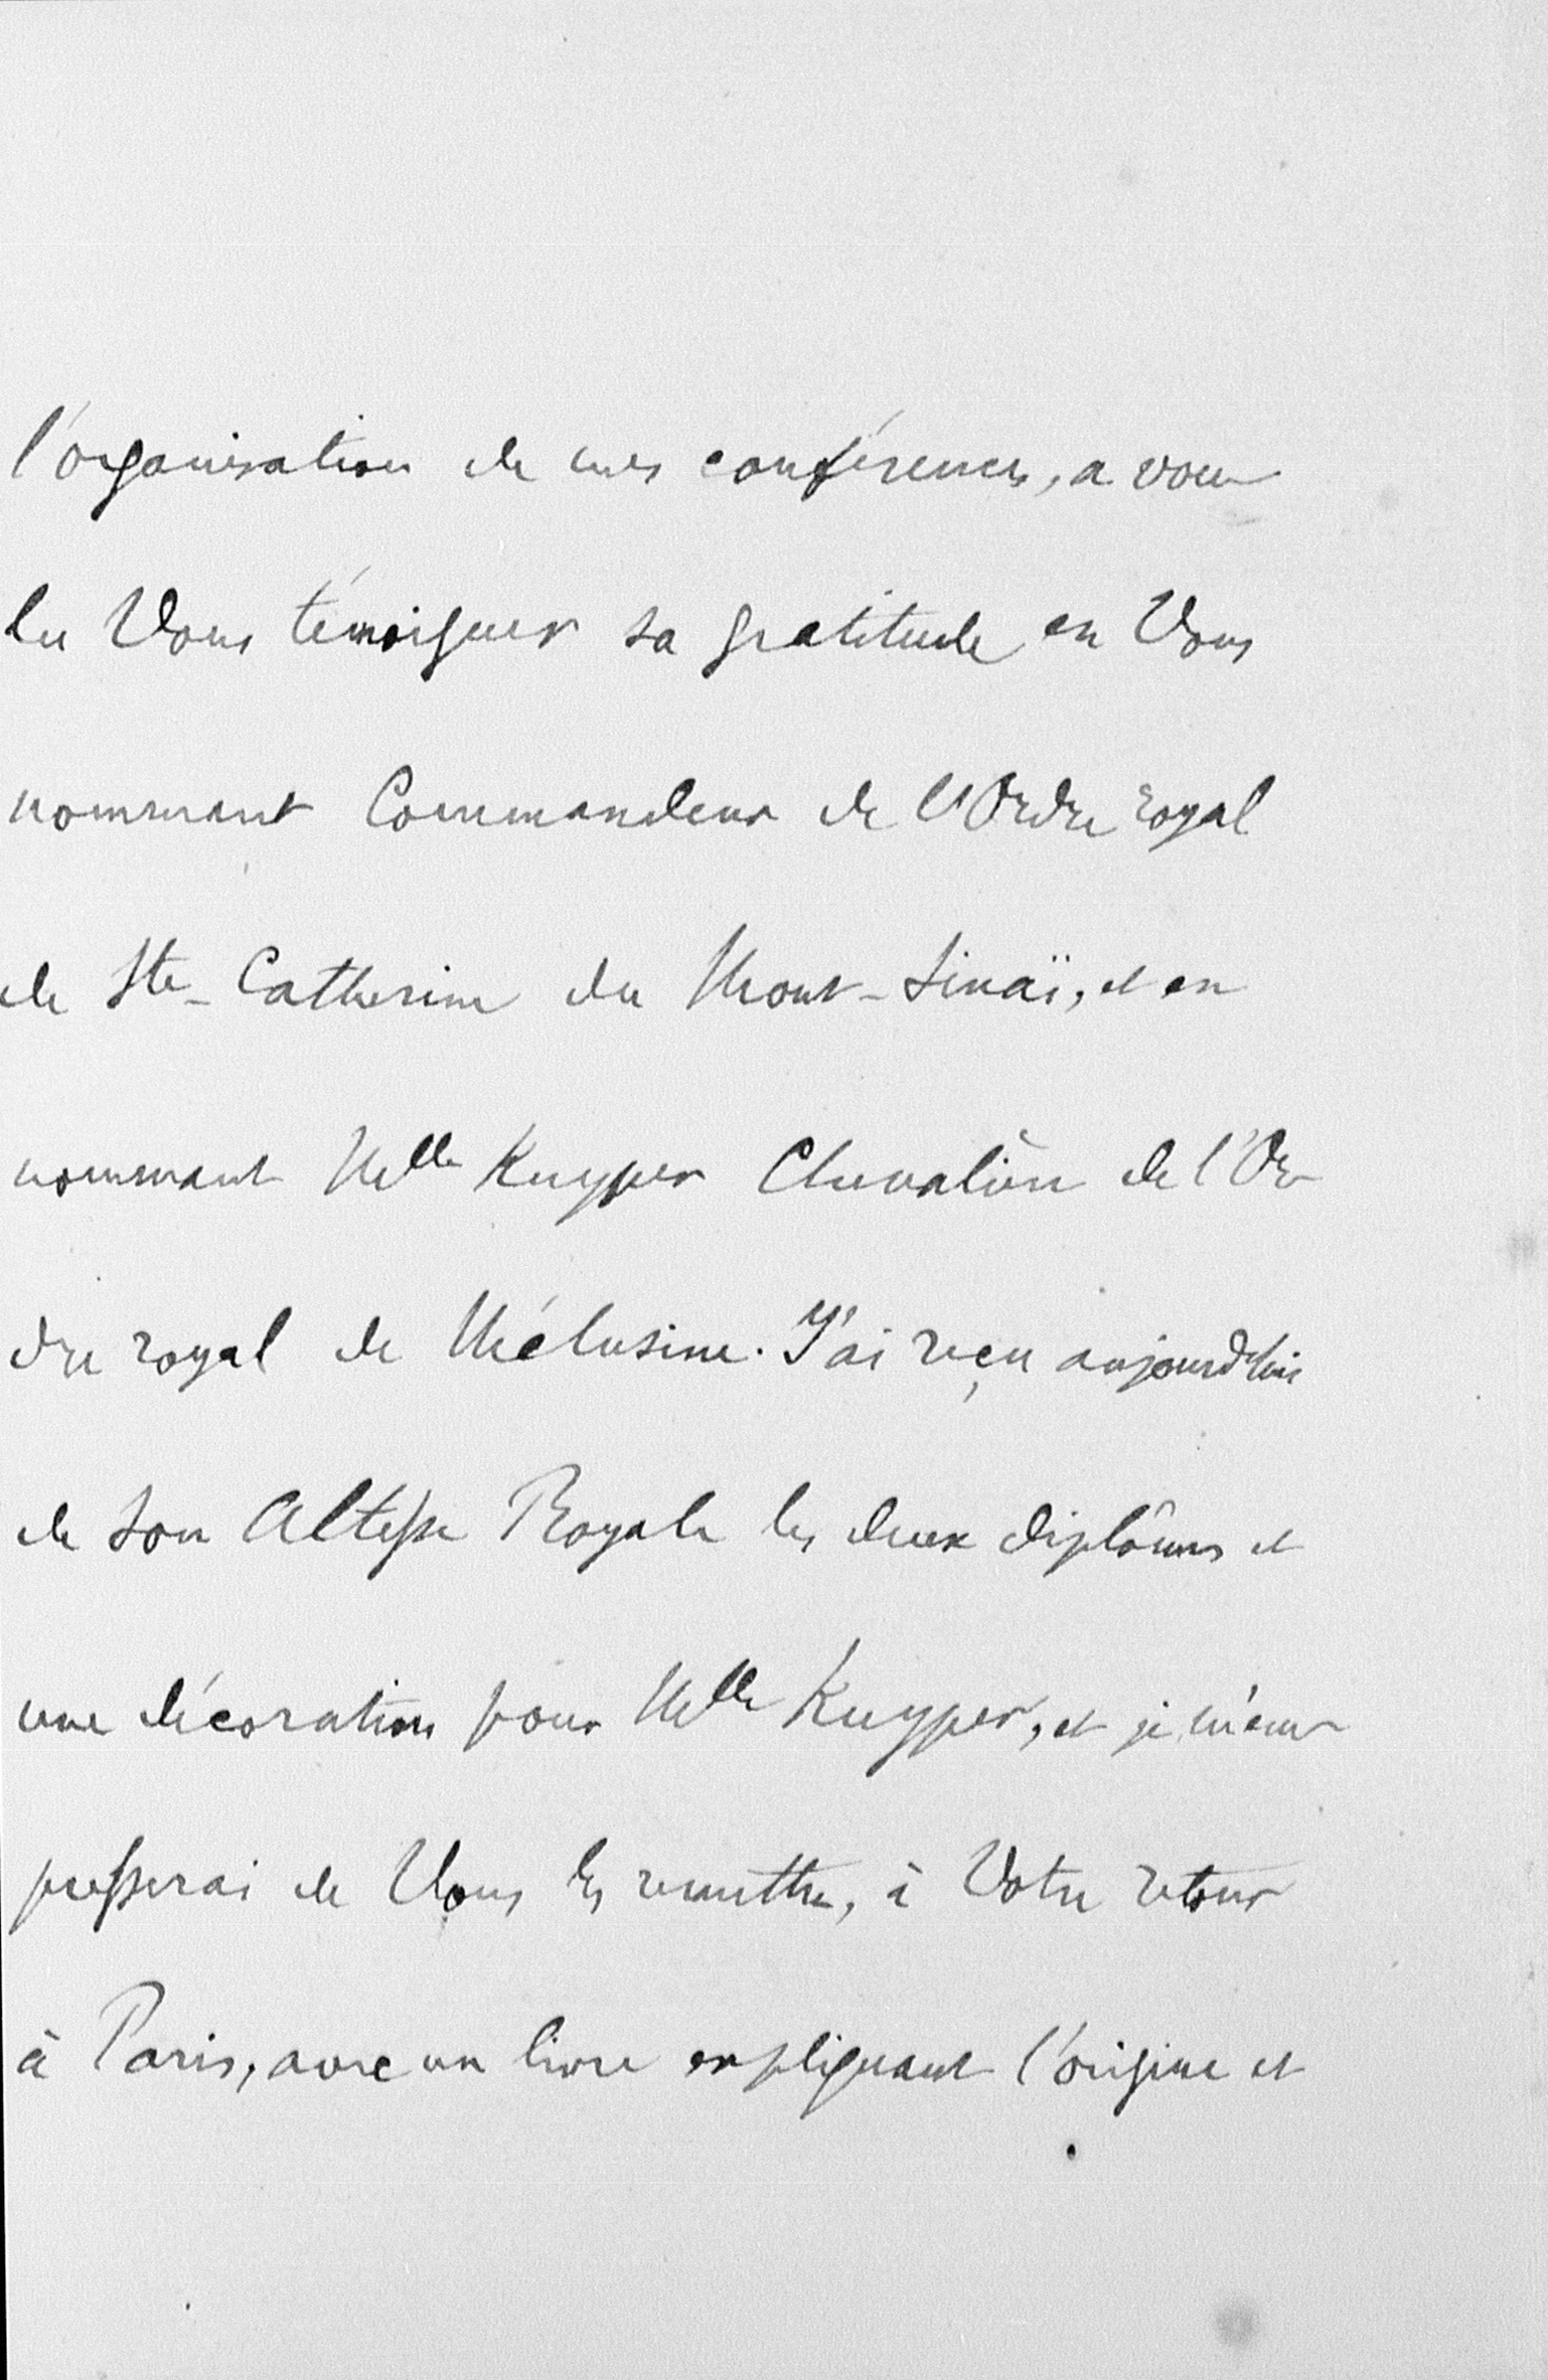 l'organisation de mes conférences, a vou
lu Vous témoigner sa gratitude en Vous
nommant Commandeur de l'Ordre royal
de Ste-Catherine du Mont-Sinaï, et en
nommant Melle Kuyper Chevalière de l'Or
dre royal de Mélusine. J'ai reçu aujourd'hui
de Son Altesse Royale les deux diplômes et
une décoration pour Melle Kuyper, et je m'em
presserai de Vous les remettre, à Votre retour
à Paris, avec un livre expliquant l'origine et